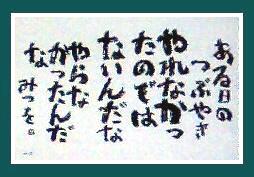 ある日の
つぶやき
やれなかっ
たのでは
ないんだな
やらな
かったんだ
な
みつを